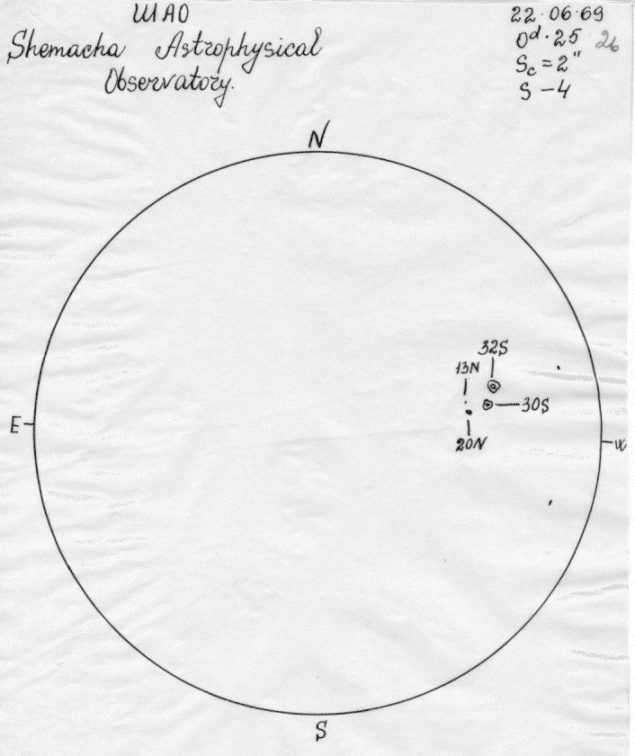 ШАО
Shemacha Astrophysical
Observatory.
22·06·69
0ᵈ·25 26
Sc = 2"
S – 4
N
32S
13N
30S
E
20N
W
S